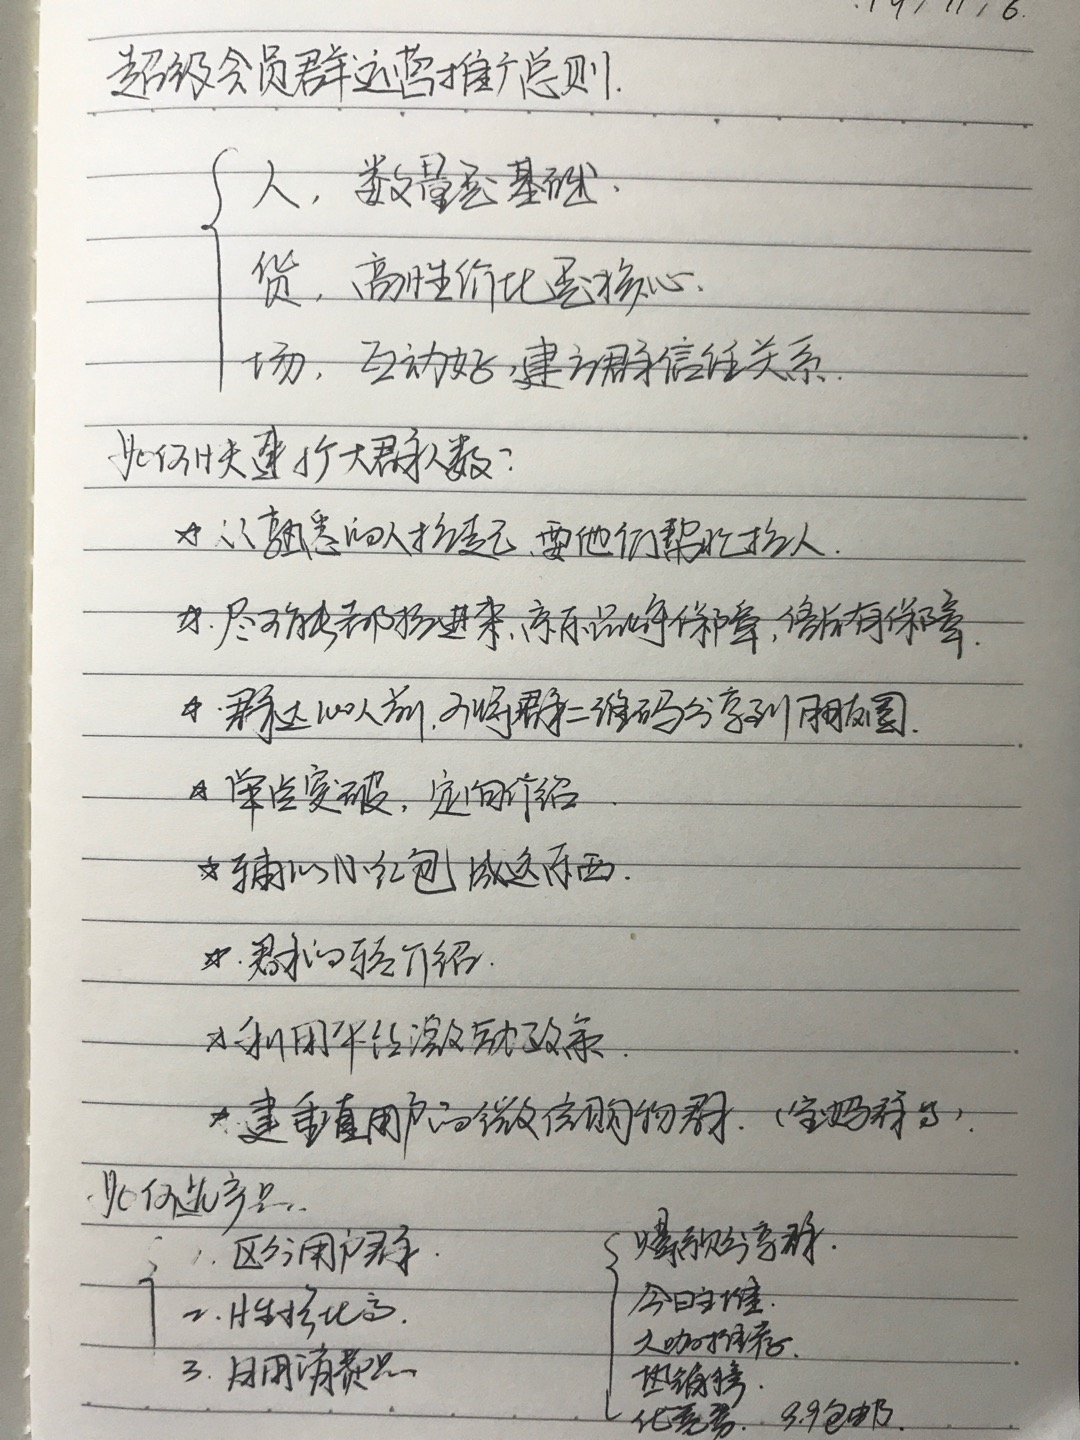 19/11/6.
超级会员群运营推广总则.
人, 数量是基础.
货, 高性价比是核心.
场, 互动好, 建立群信任关系.
如何快速扩大群人数?
☆ 以熟悉的人拉起, 要他们帮忙拉人.
☆. 尽可能都拉进来, 京东品牌保障, 售后有保障.
☆. 群达100人前, 不将群二维码分享到朋友圈.
☆ 单点突破, 定向介绍.
☆ 辅以小红包或送东西.
☆. 群的轻介绍.
☆ 利用平台激励政策.
☆. 建垂直用户的微信购物群. (宝妈群等).
如何选产品.
1. 区分用户群.
2. 性价比高.
3. 日用消费品
爆款分享群.
今日主推.
大咖推荐.
热销榜.
9.9包邮.